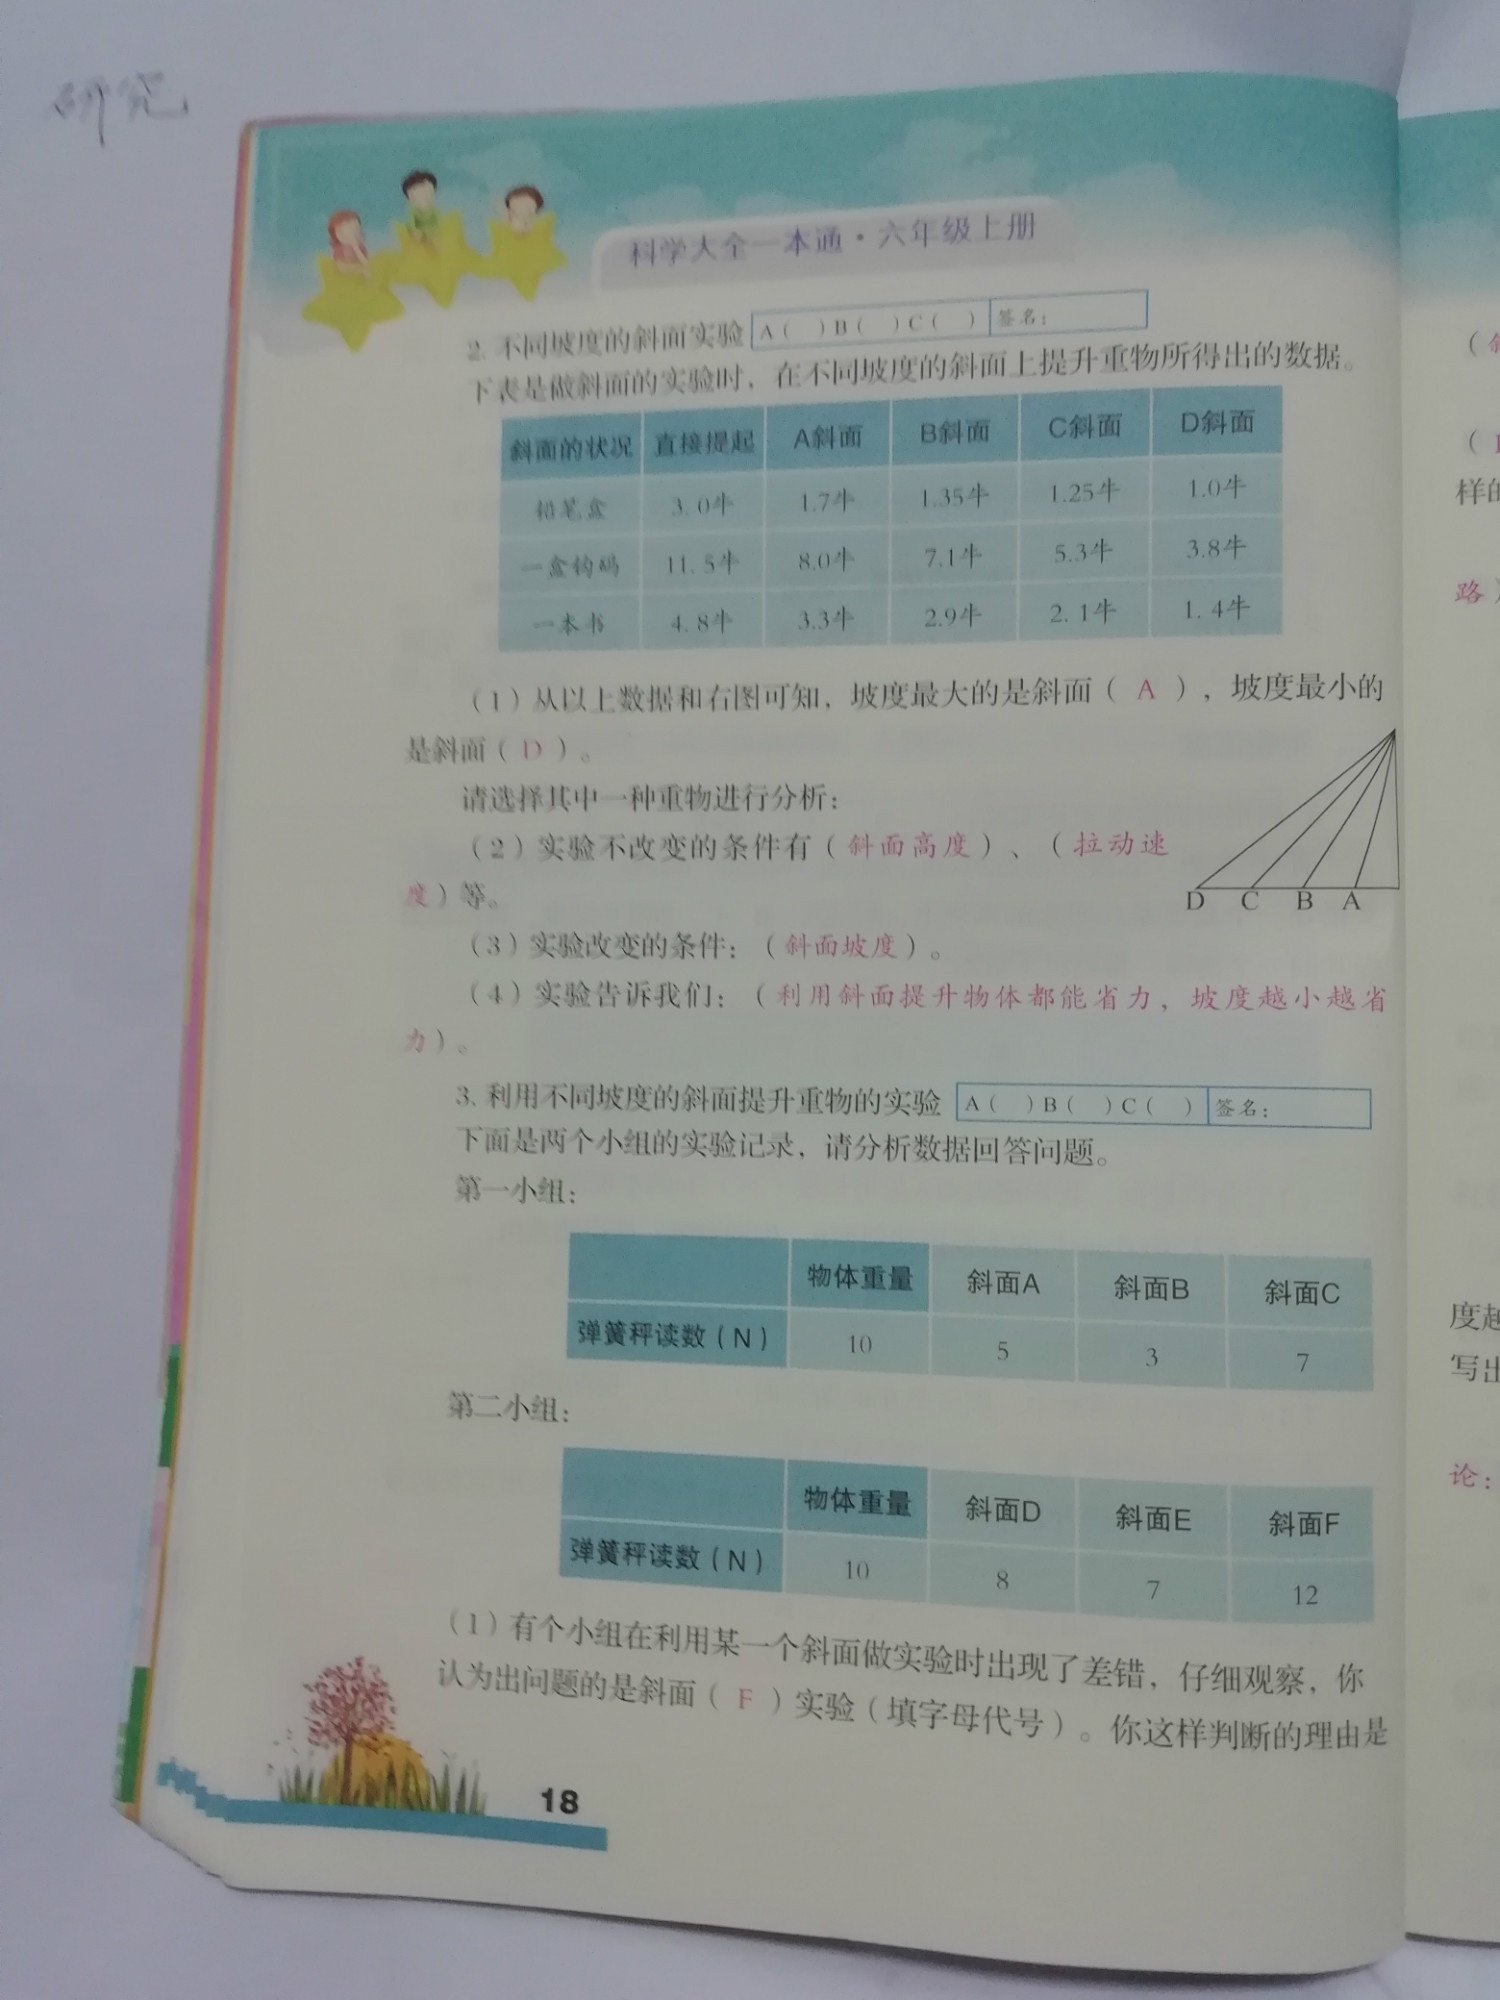 研究
科学大全一本通·六年级上册
2. 不同坡度的斜面实验 A( )B( )C( ) 签名：
下表是做斜面的实验时，在不同坡度的斜面上提升重物所得出的数据。
斜面的状况 直接提起 A斜面 B斜面 C斜面 D斜面
铅笔盒 3.0牛 1.7牛 1.35牛 1.25牛 1.0牛
一盒钩码 11.5牛 8.0牛 7.1牛 5.3牛 3.8牛
一本书 4.8牛 3.3牛 2.9牛 2.1牛 1.4牛
(1)从以上数据和右图可知，坡度最大的是斜面( A )，坡度最小的
是斜面( D )。
请选择其中一种重物进行分析：
(2)实验不改变的条件有(斜面高度)、(拉动速
度)等。
D C B A
(3)实验改变的条件：(斜面坡度)。
(4)实验告诉我们：(利用斜面提升物体都能省力，坡度越小越省
力)。
3. 利用不同坡度的斜面提升重物的实验 A( )B( )C( ) 签名：
下面是两个小组的实验记录，请分析数据回答问题。
第一小组：
物体重量 斜面A 斜面B 斜面C
弹簧秤读数(N) 10 5 3 7
第二小组：
物体重量 斜面D 斜面E 斜面F
弹簧秤读数(N) 10 8 7 12
(1)有个小组在利用某一个斜面做实验时出现了差错，仔细观察，你
认为出问题的是斜面( F )实验(填字母代号)。你这样判断的理由是
18
(
(
样的
路)
度越
写出
论：